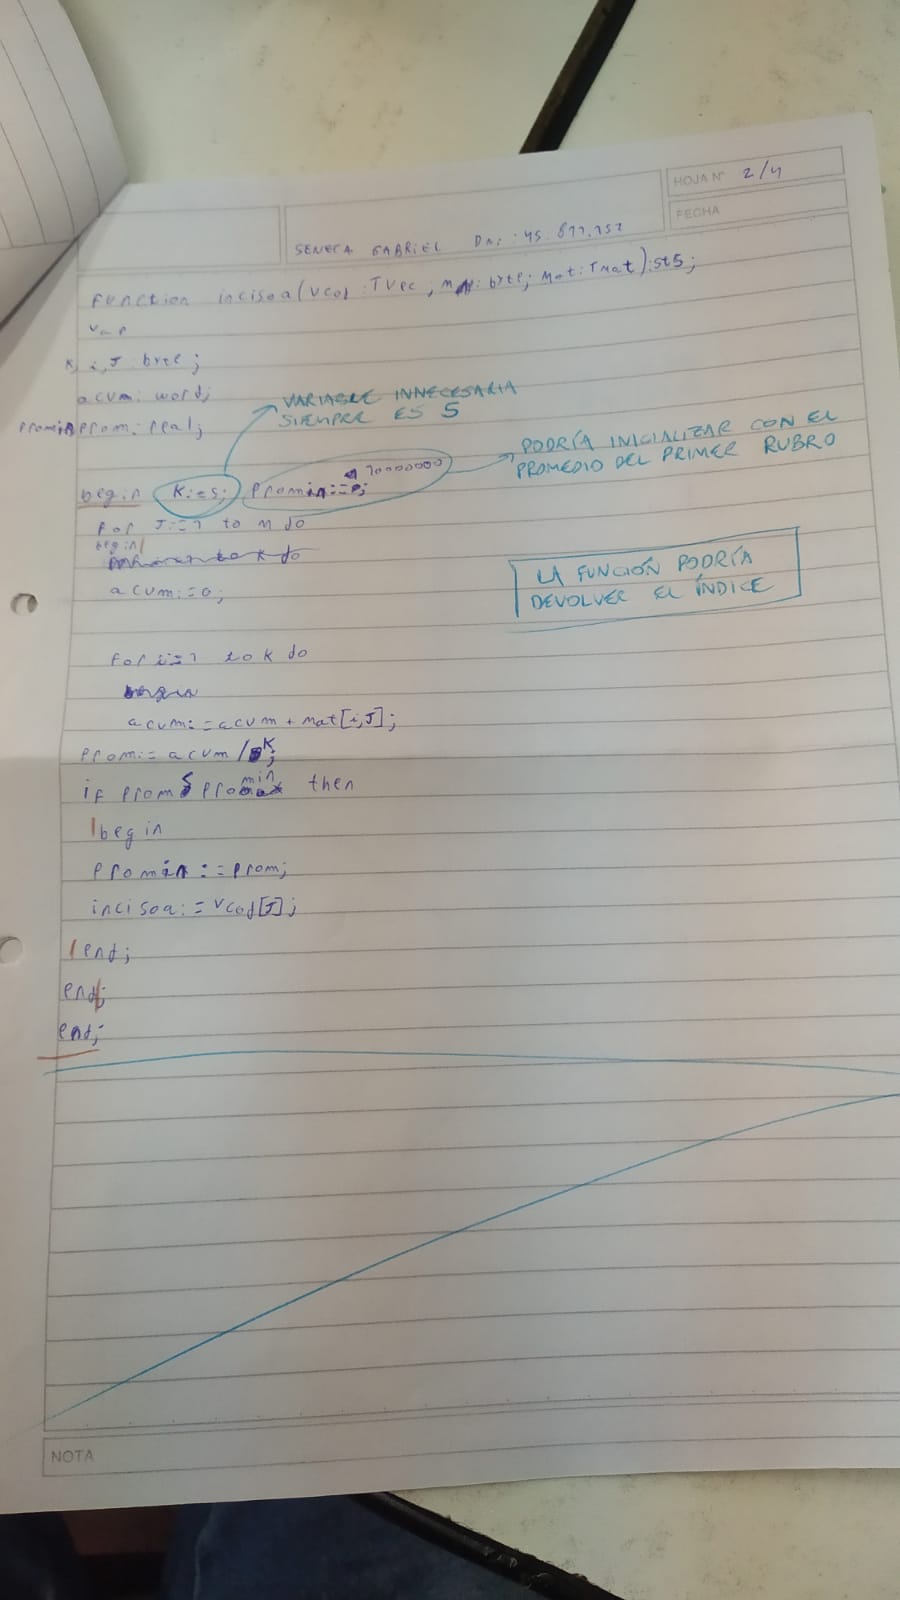 HOJA N° 2/4
FECHA
SENECA GABRIEL DNI: 45.877.757
function incisoa(vcod:TVec; m: byte; mat:Tmat):st5;
var
K, i,J:byte;
acum: word;
promin, prom: real;
VARIABLE INNECESARIA
SIEMPRE ES 5
begin K:=5; promin:= 10000000
PODRÍA INICIALIZAR CON EL
PROMEDIO DEL PRIMER RUBRO
for J:=1 to m do
begin
acum:=0;
LA FUNCIÓN PODRÍA
DEVOLVER EL ÍNDICE
for i:=1 to k do
acum:=acum + mat[i,J];
prom:= acum /K;
if prom promin then
begin
promin:=prom;
incisoa:=vcod[J];
end;
end;
end;
NOTA